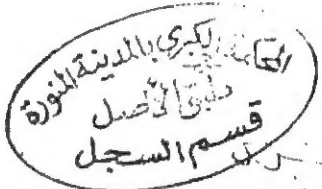 المحكمة الكبرى بالمدينة المنورة
طبق الأصل
قسم السجل